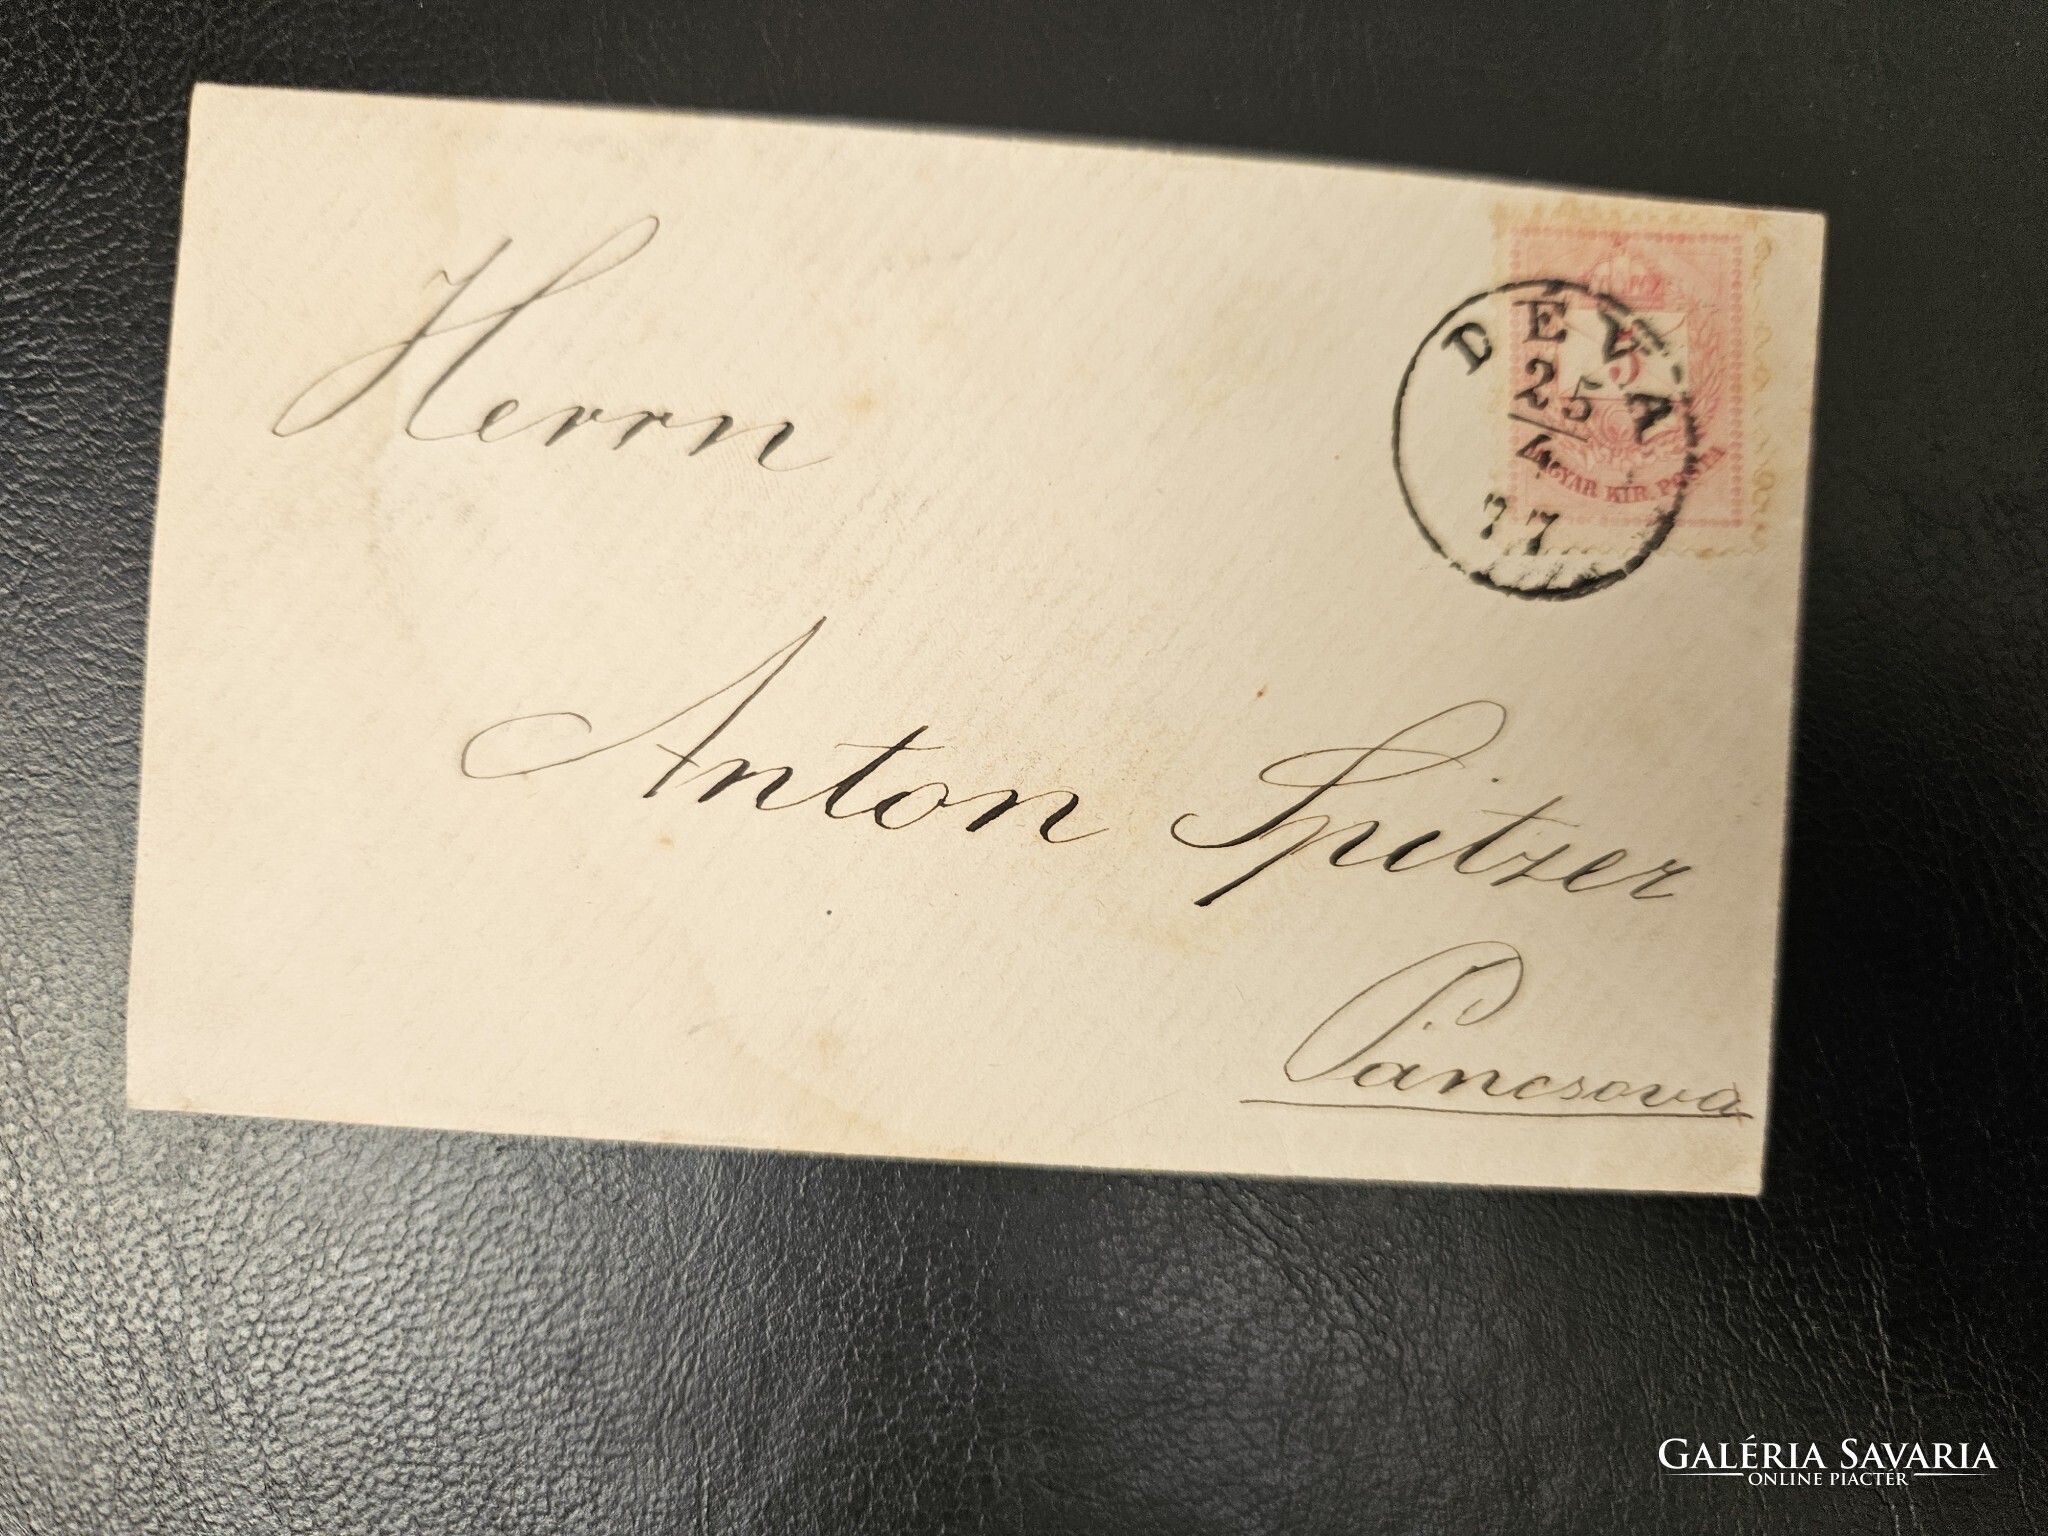 Herrn
DÉVA
25/4
77
5
MAGYAR KIR. POSTA
Anton Spitzer
Páncsova
GALÉRIA SAVARIA
ONLINE PIACTÉR